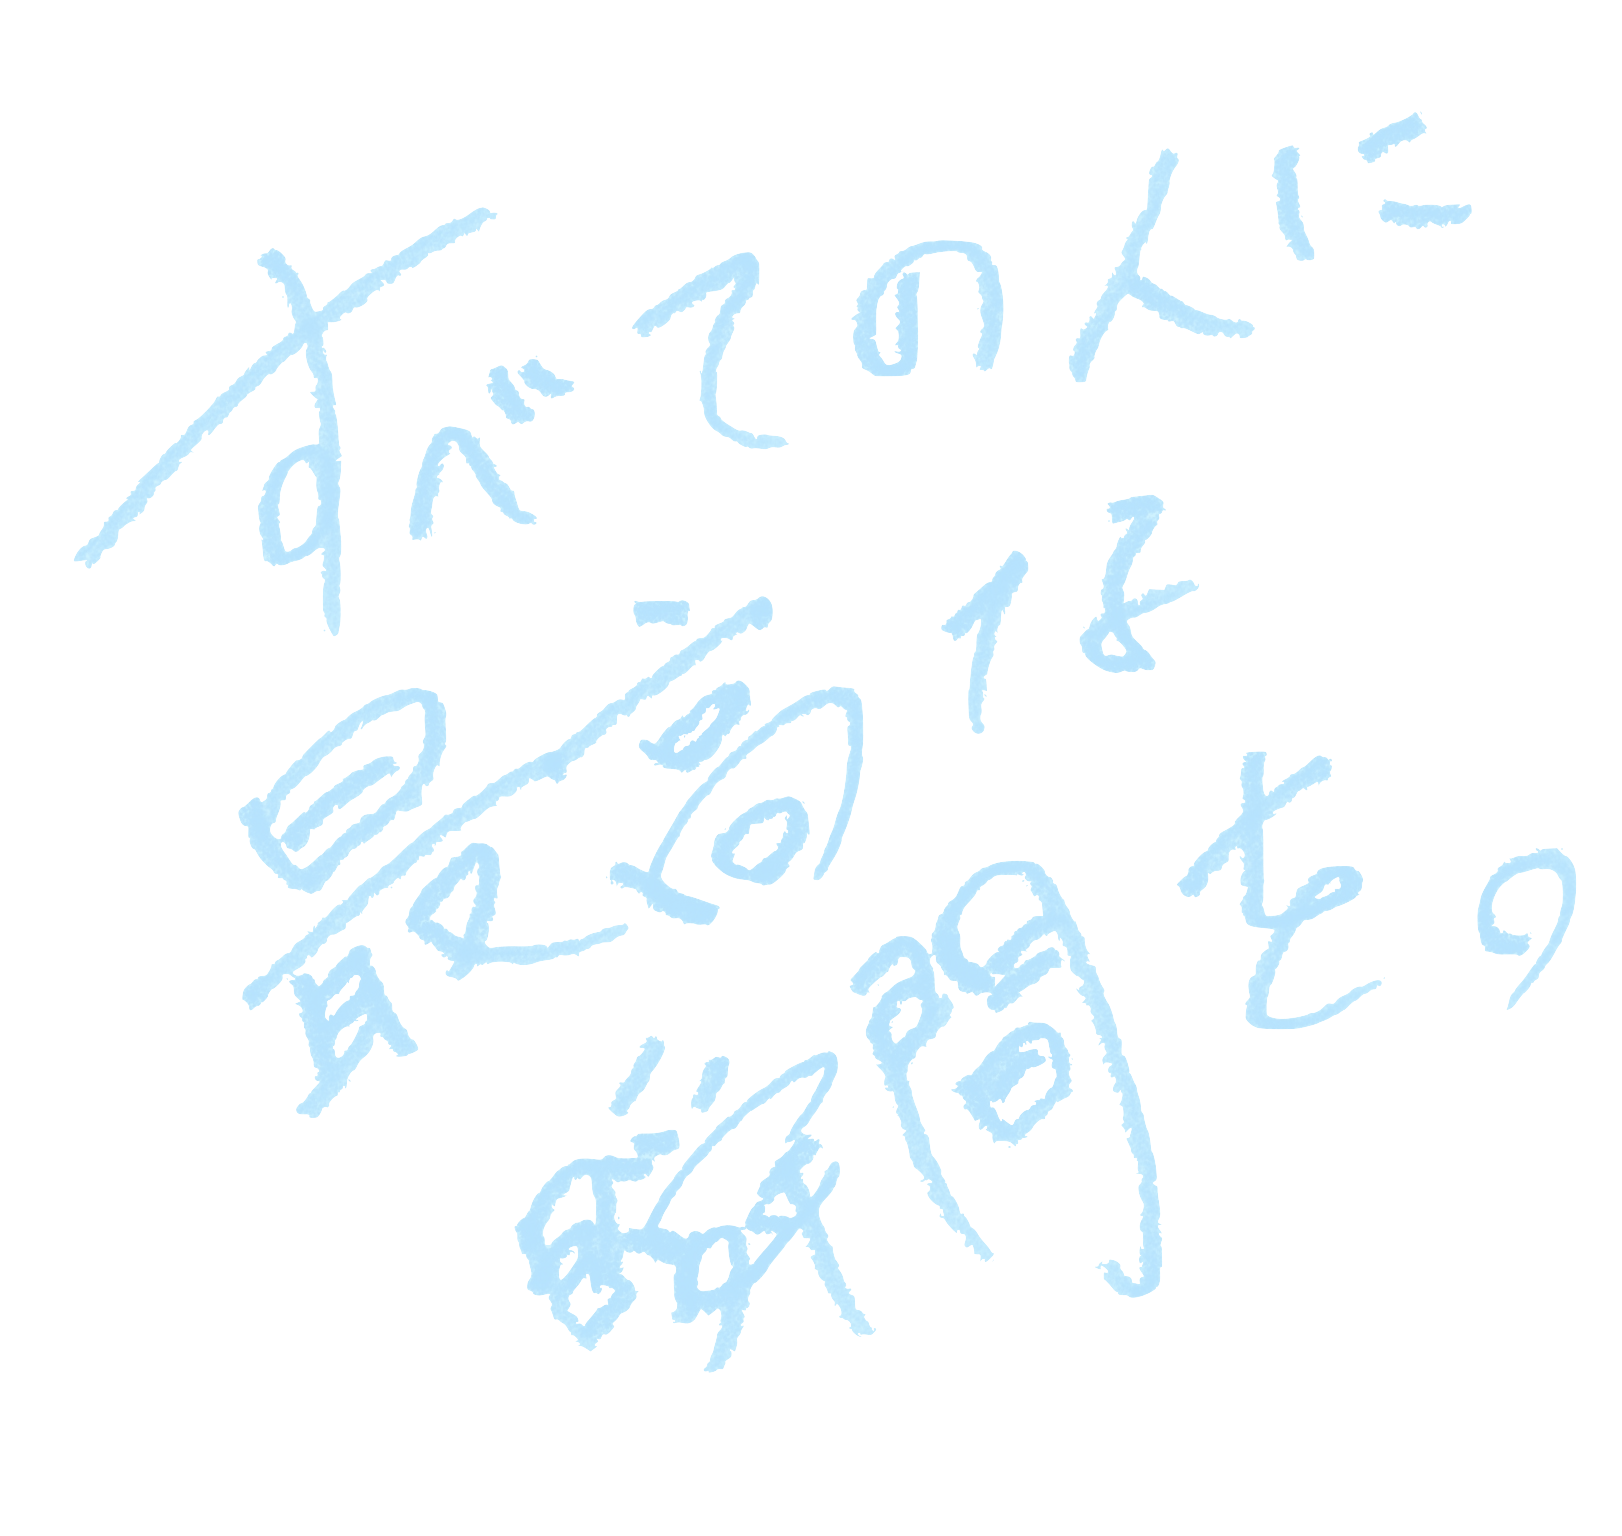 すべての人に
最高な
瞬間を。